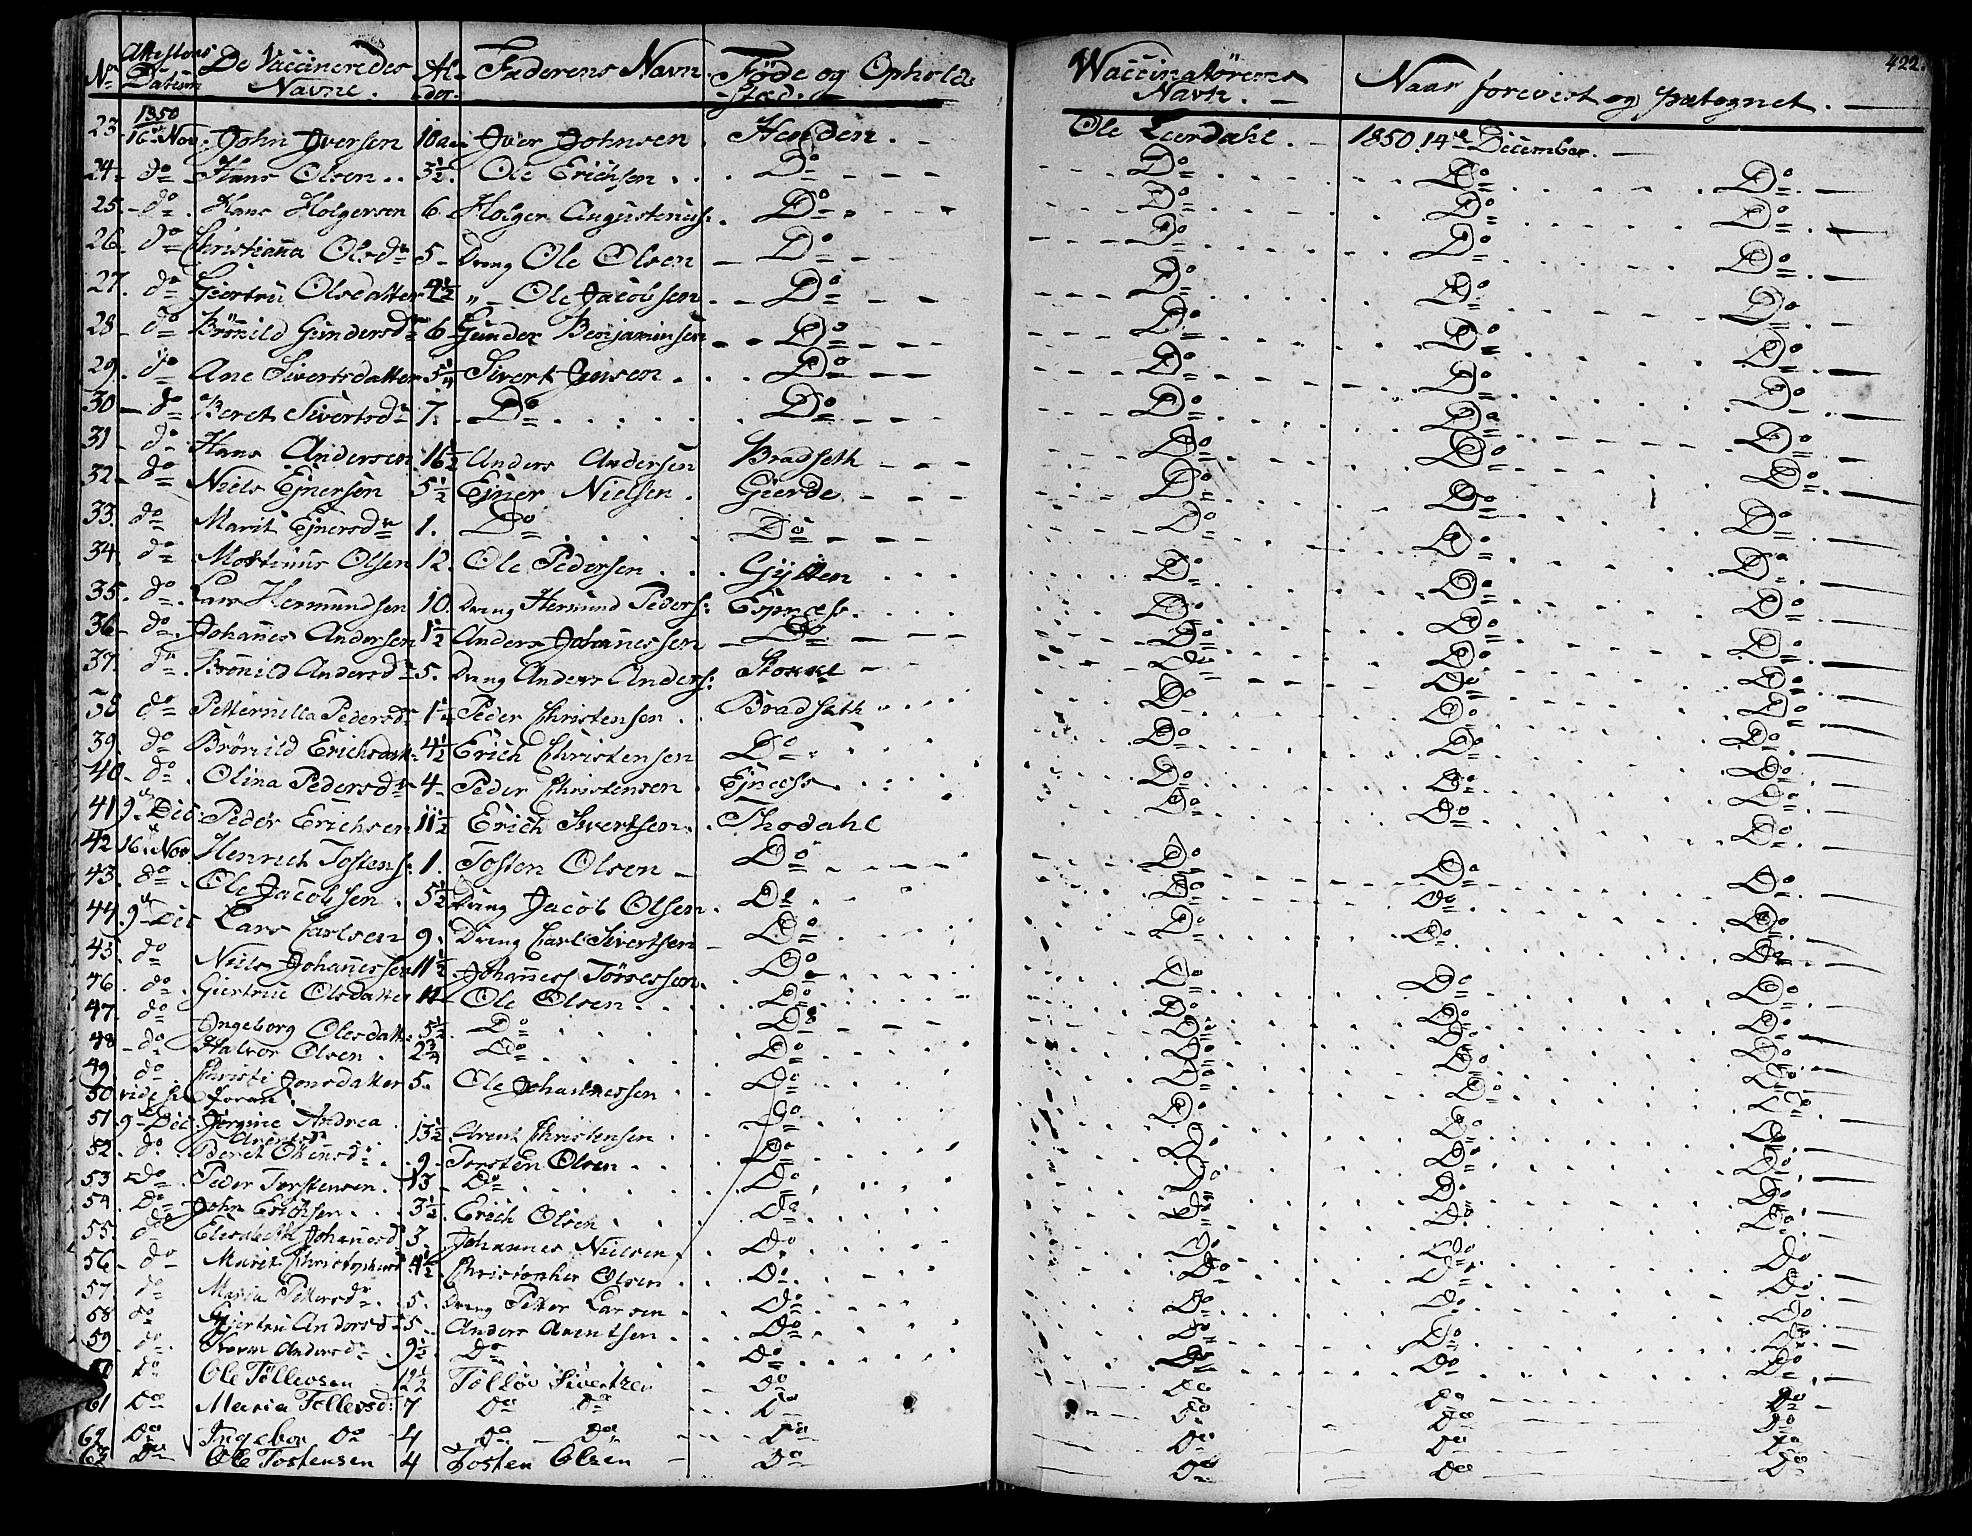 422.
No Attestens Datum De Vaccineredes Navne. Alder. Faderens Navn. Føde og Opholds Sted. Waccinatørens Navn. Naar forevist og paategnet.
1850
23 16de Nov. John Iversen 10 Iver Johnsen Henden. Ole Leerdahl. 1850. 14de December.
24 do Hans Olsen 3½ Ole Erichsen Do Do Do Do
25. do Hans Holgersen 6. Holger Augustinus: Do Do Do Do
26. do Christianna Olsdr 5 Dreng Ole Olsen Do Do Do Do
27. do Giertru Olsdatter 4½ " Ole Jacobsen Do Do Do Do
28 do Brønild Gundersdr 6 Gunder Benjaminsen Do Do Do Do
29. do Ane Sivertsdatter 5¼ Sivert Jensen Do Do Do Do
30 do Beret Sivertsdr 7. Do Do Do Do Do
31 do Hans Andersen 16½ Anders Andersen Bradseth Do Do Do
32 do Niels Ejnersen 5½ Ejner Nielsen Gierde Do Do Do
33. do Marit Ejnersdr 1. Do Do Do Do Do
34. do Mortinus Olsen 12. Ole Pedersen Gylten Do Do Do
35. do Lars Hermundsen 10. Dreng Hermund Peders: Espness Do Do Do
36 do Johannes Andersen 1½ Anders Johannessen Do Do Do Do
37. do Brønild Andersdr 5. Dreng Anders Anders: Stokke Do Do Do
38 do Petternilla Pedersdr 1¼ Peder Christensen Bradseth Do Do Do
39. do Brønild Erichsdatt: 4½ Erich Christensen Do Do Do Do
40. do Olina Pedersdr 4 Peder Christensen Ejness Do Do Do
41 9de Dec Peder Erichsen 11½ Erich Sivertsen Thodahl Do Do Do
42 16de Nov Henrich Tostens: 1. Tosten Olsen Do Do Do Do
43. do Ole Jacobsen 5½ Dreng Jacob Olsen Do Do Do Do
44. 9de Dec Lars Carlsen 9. Dreng Carl Sivertsen Do Do Do Do
45. do Niels Johannessen 11½ Johanness Tørressen Do Do Do Do
46. do Giertrue Olsdatter 11 Ole Olsen Do Do Do Do
47. do Ingeborg Olesdatt: 5½ Do Do Do Do Do
48 do Halvor Olsen 2¾ Do Do Do Do Do
49. do Christi Jonsdatter 5. Ole Johannessen Do Do Do Do
50 vide
51. 9de Dec: Jørgine Andrea Arentsdr 13½ Arent Christensen Do Do Do Do
52. do Beret 9. Torsten Olsen Do Do Do Do
53 Do Peder Torstensen 13 Do Do Do Do Do
54. Do John Erichsen 3½ Erich Olsen Do Do Do Do
55. do Elisabeth Johannsd 3. Johannes Nielsen Do Do Do Do
56 do Marit Christophersd 4½ Christopher Olsen Do Do Do Do
57. do Maria Pettersdr 5. Dreng Petter Larsen Do Do Do Do
58 do Gjertru Andersd 5. Anders Arentsen Do Do Do Do
59. do Andersdr 9½ Do Do Do Do Do
do Ole Tøllevsen 12½ Tølløv Sivertzen Do Do Do Do
61 Do Maria Tøllevsd: 7 Do Do Do Do Do Do
62 Do Ingebor Do 4 Do Do Do Do Do Do
63 Do Ole Tostensen 4 Tosten Olsen Do Do Do Do